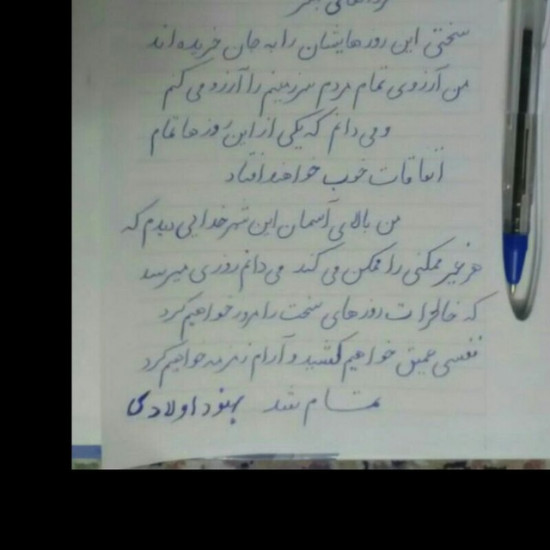 سختی این روزهایشان را به جان خریده اند
من آرزوی تمام مردم سرزمینم را آرزو می کنم
و می دانم که یکی از این روزها تمام
اتفاقات خوب خواهند افتاد
من بالای آسمان این شهر خدایی دیدم که
هر غیر ممکنی را ممکن می کند می دانم روزی میرسد
که خاطرات روزهای سخت را مرور خواهیم کرد
نفسی عمیق خواهیم کشید و آرام زمزمه خواهیم کرد
تمام شد بهنود اولادی